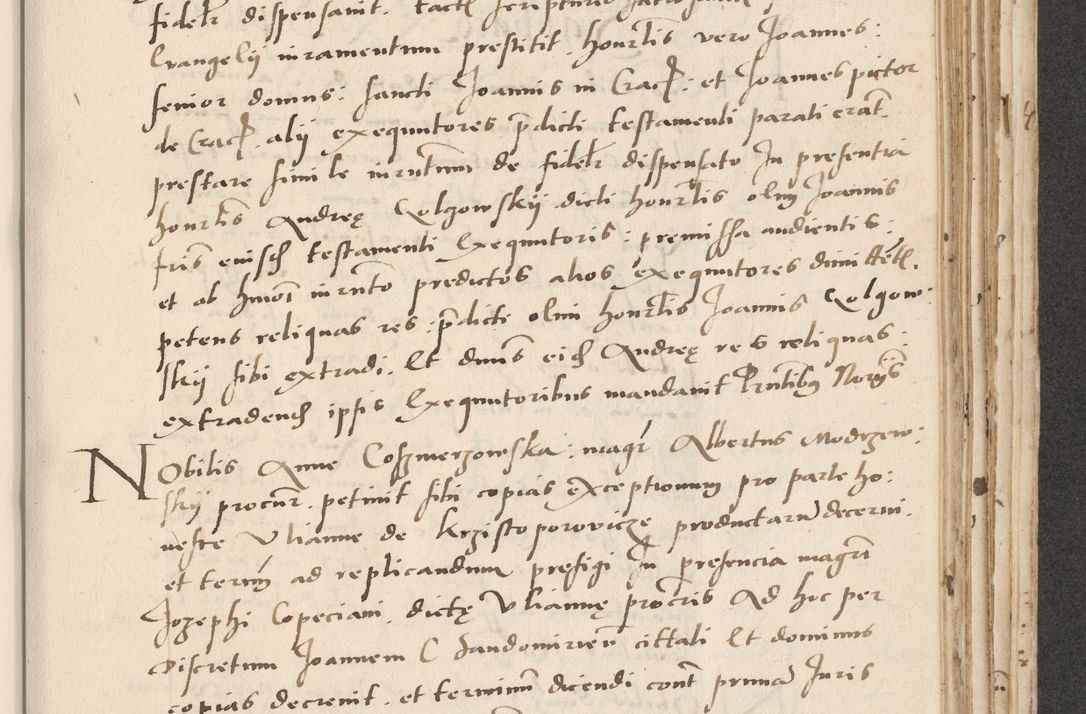 fidelr dispensavit. tactis scripturis
Evangelij iuramentum prestitit. honrlis vero Joannes:
senior domus: sancti Joannis in Crac: et Joannes pictor
de Crac. alij exequutores pdicti testamenti parati erant.
prestare simile iurntum de fidelr dispensato In presentia
honrlis Andreę Golgowskij dicti honrlis olim Joannis
fris eiusd testamenti Exequutoris: premissa audientis:
et ab hmoi iurnto predictos alios exequutores dimitten.
petens reliquas res: pdicti olim honrlis Joannis Golgow:
skij sibi extradi. Et dnus eid Andreę res reliquas:
extradend ipsis Exequutoribus mandavit Pntibus Norijs
Nobilis Anne Coszmerzowska: magr Albertus Modrzew:
skij procur. petivit sibi copias exceptionum pro parte ho:
neste Ulianne de Krzistoporovicze productaru decerni.
et termi ad replicandum prefigi In presencia magri
Jozephi Copeciani. dictę Uliannę procris Ad hoc per
Discretum Joannem C Sandomirien cittati Et dominus
copias decrevit. et terminum dicendi cont prima Juris